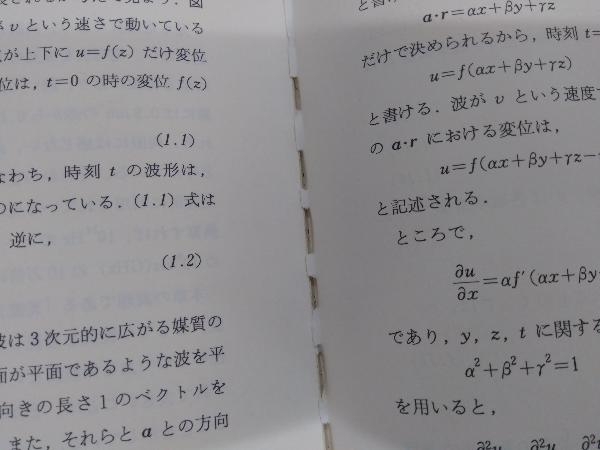 という速さで動いている
が上下に u=f(z) だけ変位
位は，t=0 の時の変位 f(z)
(1.1)
なわち，時刻 t の波形は，
のになっている．(1.1) 式は
逆に，
(1.2)
波は3次元的に広がる媒質の
面が平面であるような波を平
向きの長さ1のベクトルを
また，それらと a との方向
と書
a・r=αx+βy+γz
だけで決められるから，時刻 t=
u=f(αx+βy+γz)
と書ける．波が v という速度
の a・r における変位は，
u=f(αx+βy+γz−
と記述される．
ところで，
∂u/∂x=αf′(αx+βy
であり，y，z，t に関する
α²+β²+γ²=1
を用いると，